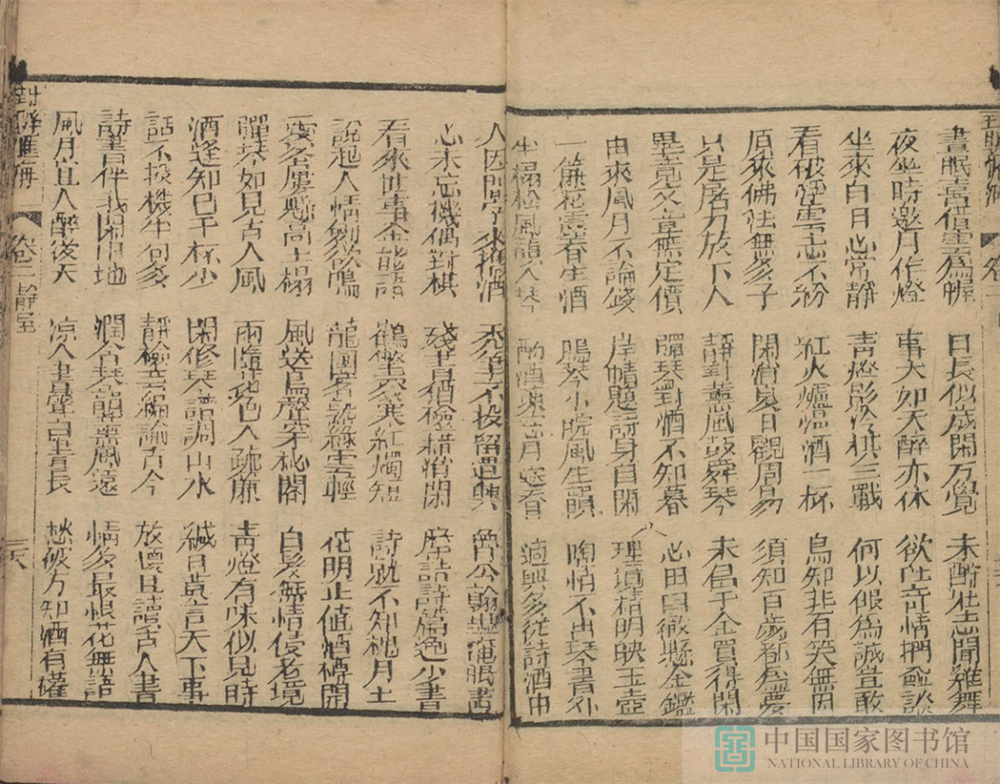 晝眠喜借雲為幄 日長似歲閒方覺 未酬壯志聞雞舞
夜坐時邀月作燈 事大如天醉亦休 欲吐奇情捫虱談
坐來白日心常靜 青燈影冷棋三戰 何以儆為誠豈敢
看破浮雲志不紛 紅火爐溫酒一杯 鳥知非有笑無因
原來佛法無多子 閑消夏日觀周易 須知百歲都為夢
只是屠刀放下人 靜對薰風鼓舜琴 未昌千金買得閑
異竟文章無定價 彈琴對酒不知暮 心田囙徹懸金鑑
由來風月不論錢 岸幘題詩身自閑 理境精明映玉壺
一簾花雲春生酒 鳴琴小院風生韻 陶情不出琴書外
坐榻松風韻入琴 酌酒東窗月送春 適興多從詩酒中
人因問字來攜酒 不投留遣興 翰墨 眠書
心未忘機偶對棋 殘書猶檢藉消閑 摩詰詩篇逸少書
看來世事金能語 鶴坐 棋紅燭短 詩就不知枕月上
說起人情劍欲鳴 龍團茗 綠雲輕 花明止值酒樽開
交名屢懸高士榻 風送鳥聲穿秘閣 自髮無情侵老境
彈琴如見古人風 雨隋花色入疏簾 青燈有味似見時
酒逢知已千杯少 閑修琴譜調山水 緘口莫言天下事
話不投機半句多 靜檢芸編論古今 放懷且讀古人書
詩書伴我閑中地 潤含琴韻薰風遠 情多最恨花無語
風月豈人醉後天 凉入書聲白晝長 愁破方知酒有權
對聯匯海 卷二 靜室 三六
中国国家图书馆
NATIONAL LIBRARY OF CHINA